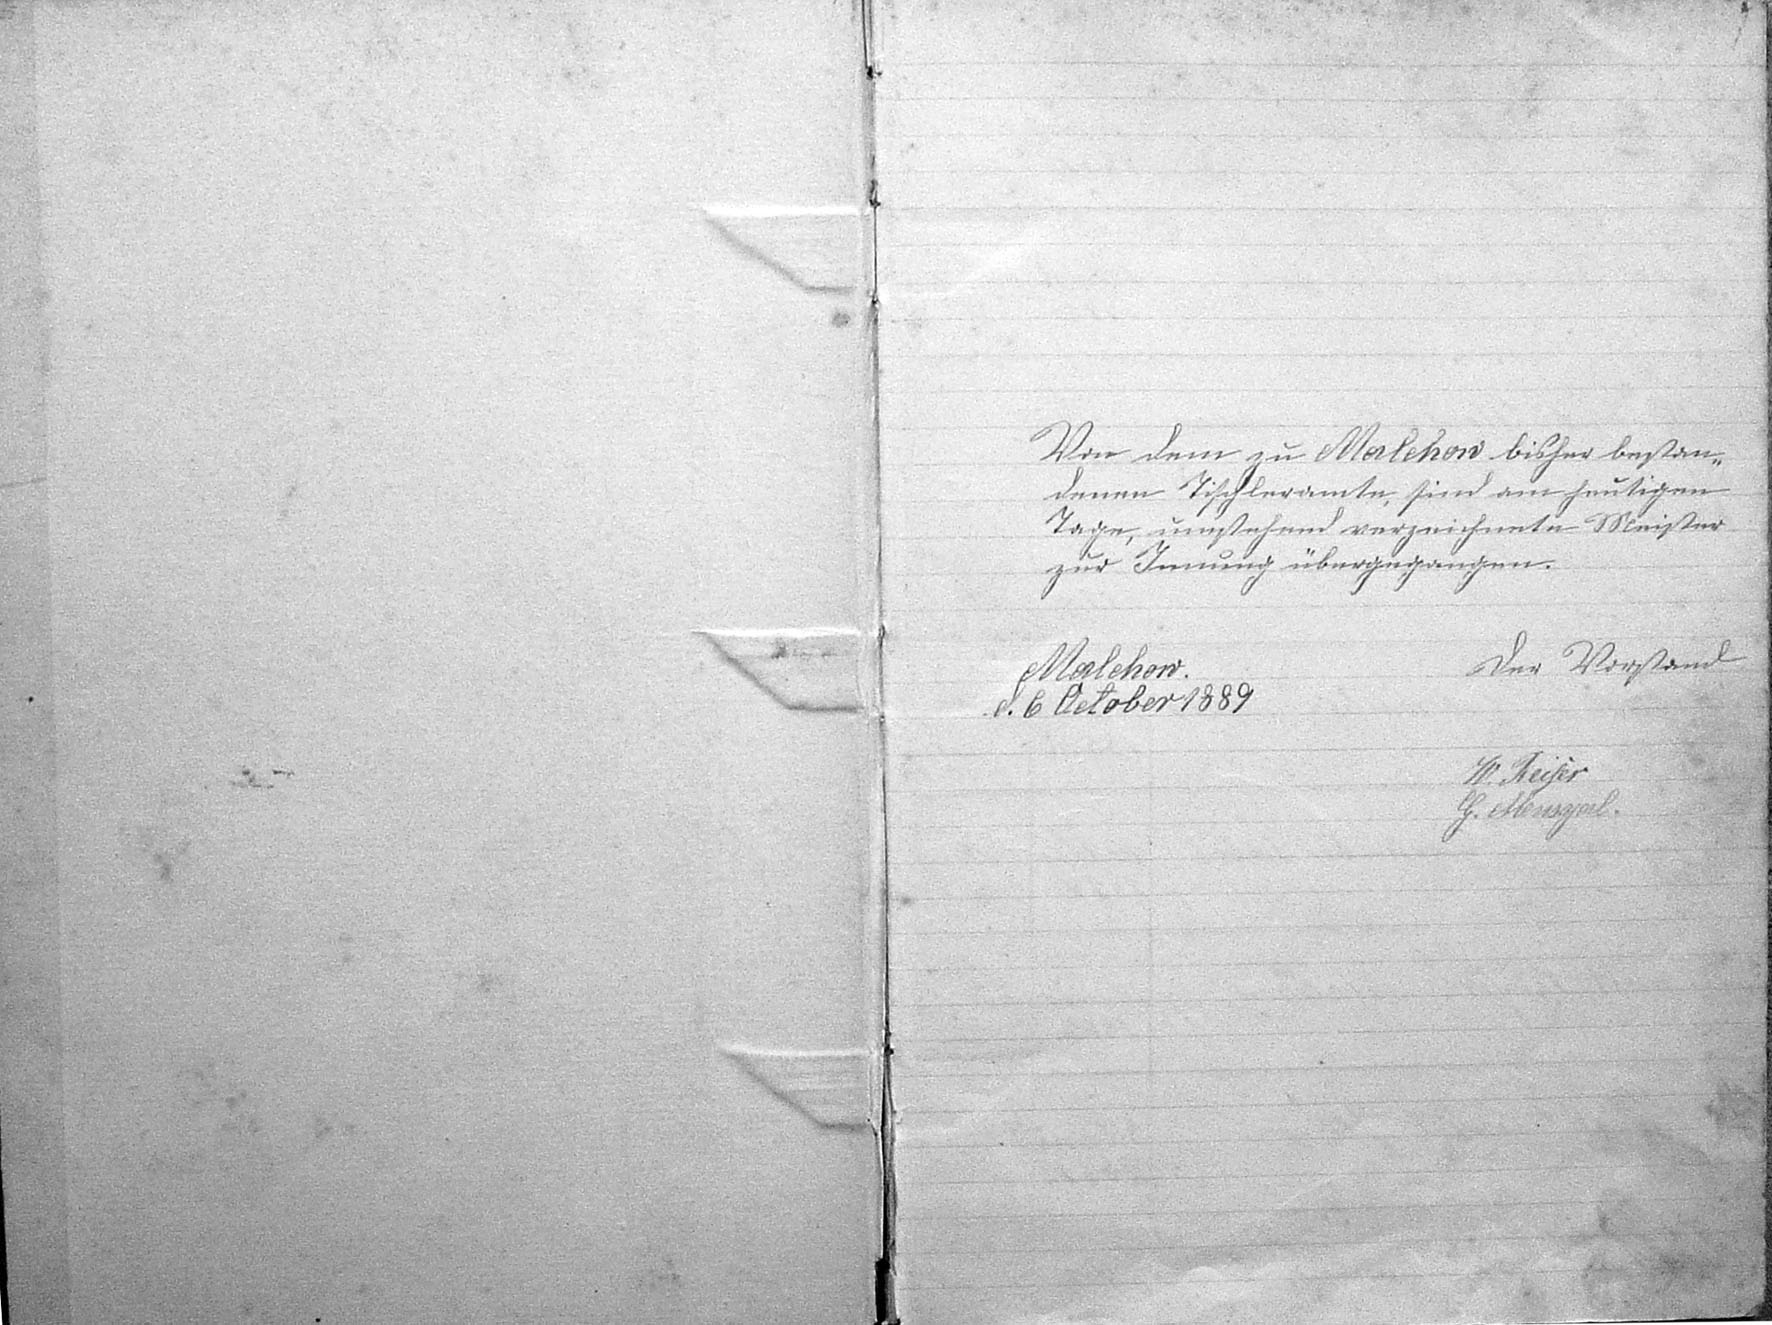 Von dem zu Malchow bisher bestan„
denen Tischleramte, sind am heutigen
Tage, umstehend verzeichnete Meister
zur Innung übergegangen.
Malchow.
d. 6 October 1889
Der Vorstand
W. Reiser
G.